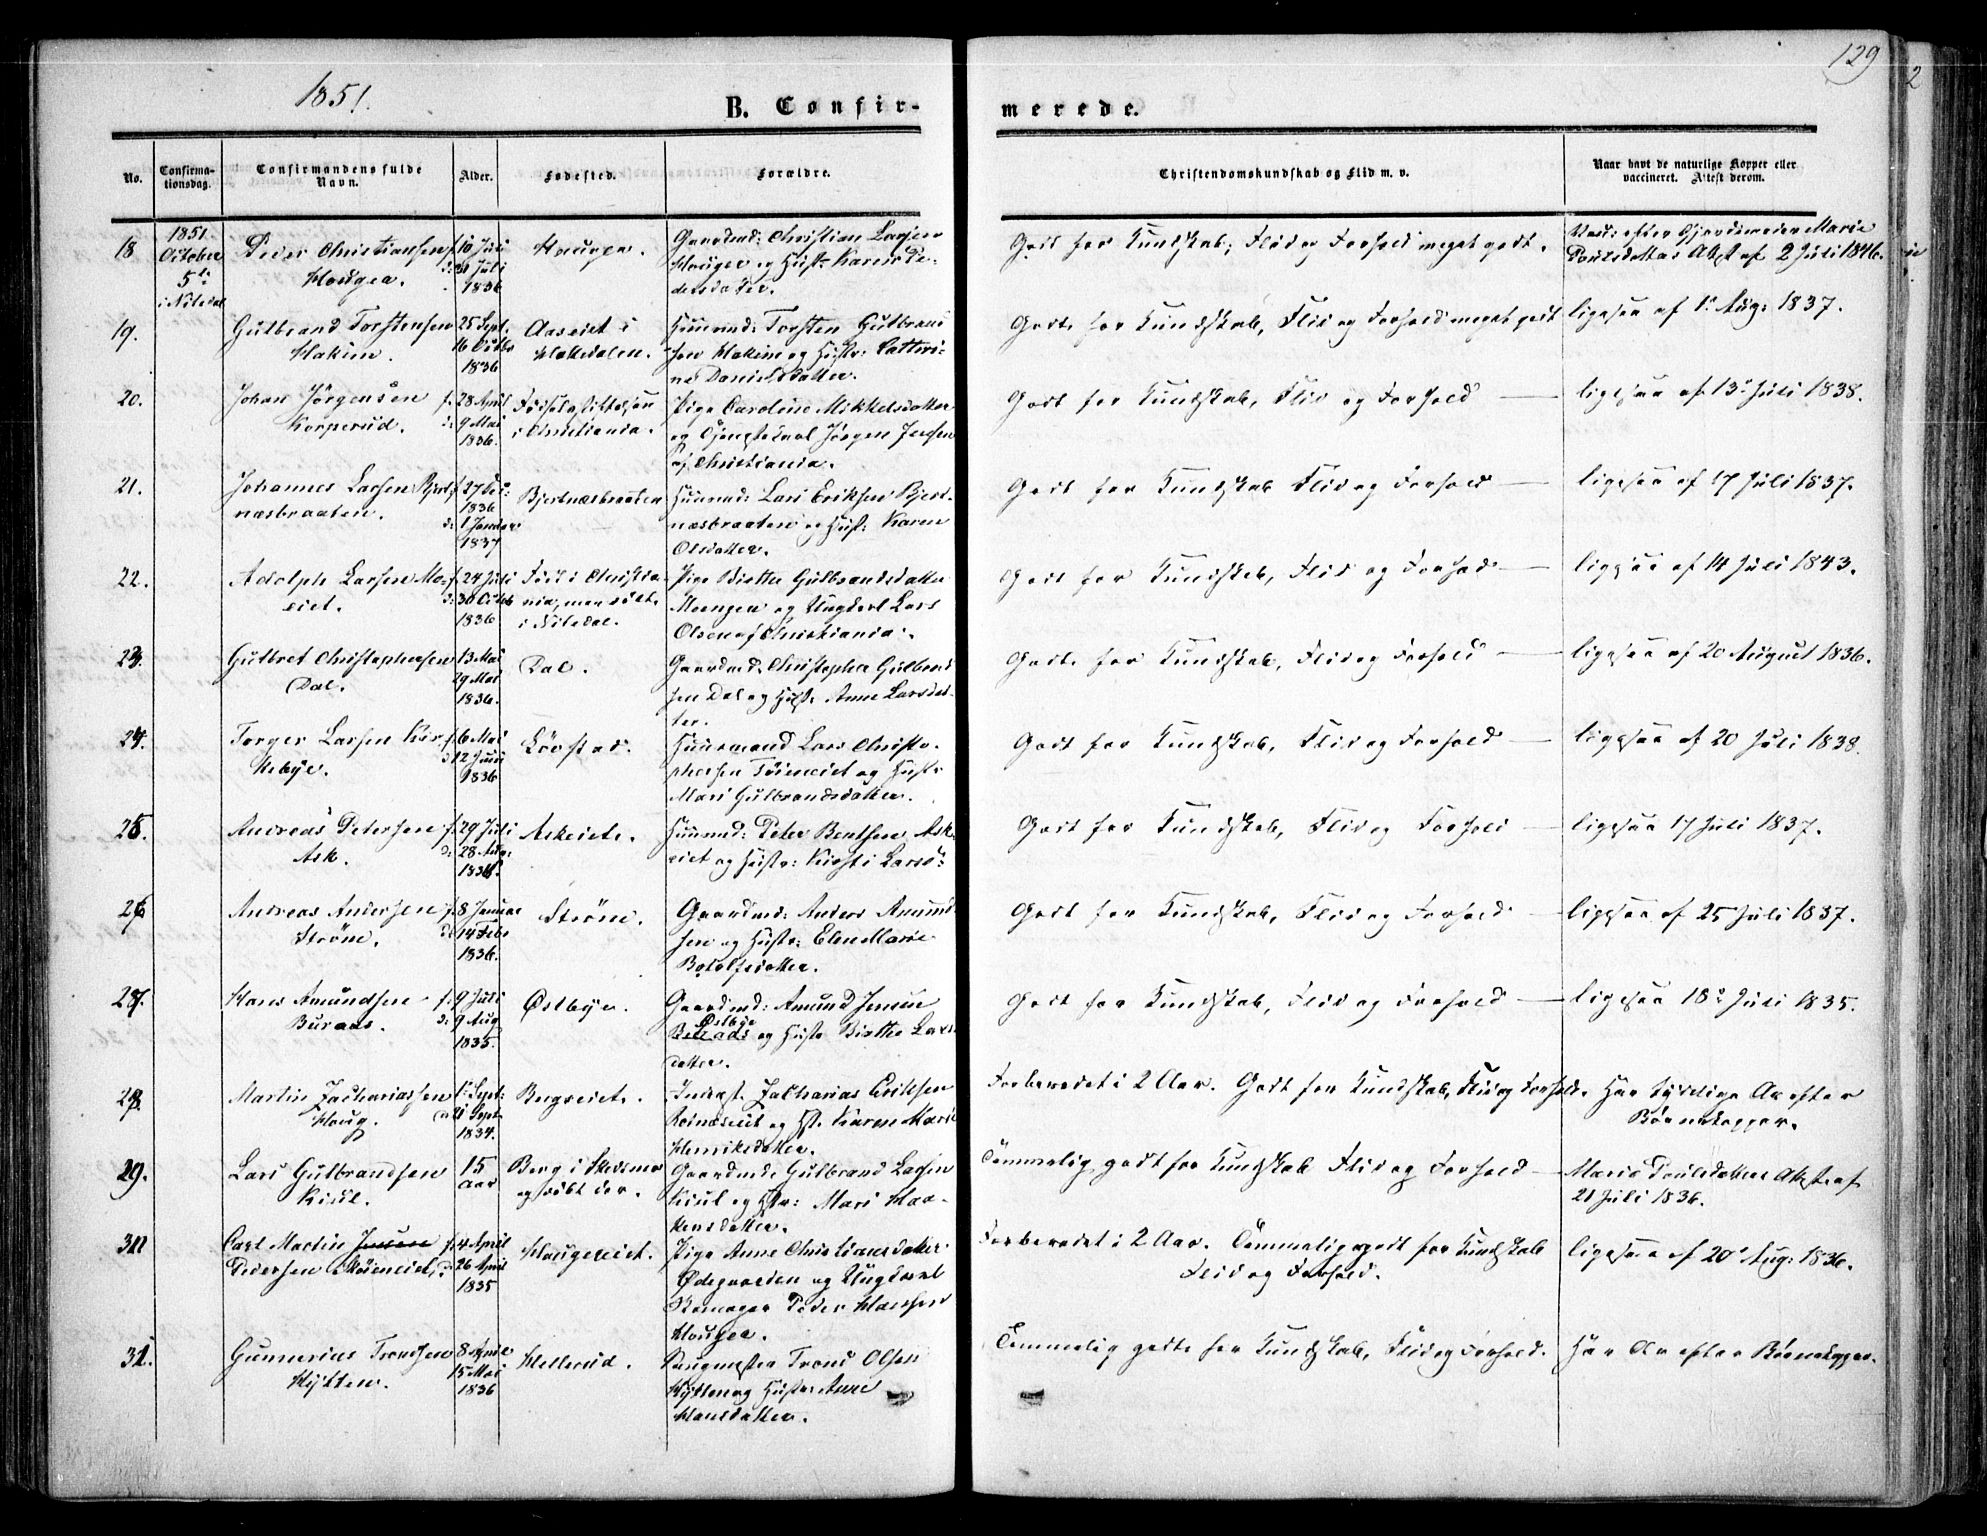 129
2
1851.
B. Confir-
merede.
No.
Confirma-
tionsdag.
Confirmandens fulde
Navn.
Alder.
Fødested.
Forældre.
Christendomskundskab og Flid m. v.
Naar havt de naturlige Kopper eller
vaccineret. Attest derom.
18
1851.
October
5te
i Nitedal
Peder Christiansen
Hougen.
f. 10 Juli
d: 31 Juli
1836
Hougen.
Gaardmd: Christian Larsen
Hougen og Hustr: Karen Pe-
dersdatter.
Godt for Kundskab, Flid og Forhold meget godt.
Vacc: efter Gjordemoder Marie
Poulsdatters Attest af 2 Juli 1846.
19.
Gulbrand Torstensen
Hakim.
25 Sept.
16 Octbr
1836
Aaseiet i
Hakedalen.
Huusmd: Torsten Gulbrand
sen Hakim og Hustr: Cathri-
ne Danielsdatter.
Godt for Kundskab, Flid og Forhold meget godt
ligesaa af 1 Aug: 1837.
20.
Johan Jørgensen
Korperud.
f. 28 April
d: 9 Mai
1836.
Fødselsstiftelsen
i Christiania.
Pige Caroline Mikkelsdatter
og Tjenestekarl Jørgen Jensen
af Christiania.
Godt for Kundskab, Flid og Forhold
ligesaa af 13 Juli 1838.
21.
Johannes Larsen Bjert-
næsbraaten.
f. 27
1836
d: 1 Januar
1837
Bjertnæsbraaten
Huusmd: Lars Eriksen Bjert-
næsbraaten og Hust: Karen
Olsdatter.
Godt for Kundskab Flid og Forhold
ligesaa af 17 Juli 1837.
22.
Adolph Larsen Mo-
eiet.
f. 24 Juli
d: 30 Octob
1836
Født i Christia-
nia, men døbt
i Nitedal.
Pige Birthe Gulbrandsdatter
Moengen og Ungkarl Lars
Olsen af Christiania.
Godt for Kundskab, Flid og Forhold
ligesaa af 14 Juli 1843.
23.
Gulbret Christophersen
Dal.
13 Mai
29 Mai
1836.
Dal.
Gaardmd: Christopher Gulbrand
sen Dal og Hustr: Anne Larsdat-
ter.
Godt for Kundskab, Flid og Forhold
ligesaa af 20 August 1836.
24.
Torger Larsen Kir-
kebye.
f. 6 Mai
d: 12 Juni
1836
Løvstad.
Huusmand Lars Christo-
phersen Tøieneiet og Hustr:
Mari Gulbrandsdatter.
Godt for Kundskab, Flid og Forhold
ligesaa af 20 Juli 1838.
25.
Andreas Petersen
Ask.
f. 29 Juli
d: 28 Aug:
1836.
Askeiet.
Huusmd: Peter Bentsen Ask-
eiet og Hustr: Kirsti Larsd:
Godt for Kundskab, Flid og Forhold
ligesaa 17 Juli 1837.
26.
Andreas Andersen
Strøm.
f. 8 Januar
d: 14 Febr
1836.
Strøm.
Gaardmd: Anders Amund-
sen og Hustr: Elen Marie
Botolfsdatter.
Godt for Kundskab, Flid og Forhold
ligesaa af 25 Juli 1837.
27.
Hans Amundsen
Buraas.
f. 9 Juli
d: 9 Aug
1835.
Østbye.
Gaardmd: Amund Jensen
Østbye
Buraas og Hustr Birthe Lars
datter.
Godt for Kundskab, Flid og Forhold
ligesaa 18 Juli 1835.
28.
Martin Zachariassen
Houg.
1 Sept:
21 Sept
1834.
Bugseiet.
Inderst Zacharias Eriksen
og Hst. Karen Marie
Henriksdatter.
Forberedet i 2 Aar. Godt for Kundskab, Flid og Forhold.
Har tydelige Ar efter
Børnekopper.
29.
Lars Gulbrandsen
Kisul.
15
aar
Berg i Skedsmo
og døbt der.
Gaardmd: Gulbrand Larsen
Kisul og Hstr: Mari Haa-
kensdatter.
Temmelig godt for Kundskab Flid og Forhold
Marie Poulsdatters Attest af
21 Juli 1836.
30
Carl Martin Jensen
Pedersen
f. 4 April
d. 26 April
1835
Hougeseiet.
Pige Anne Christiansdatter
Ødegaarden og Ungkarl
Skomager Peder Hansen
Hougen.
Forberedet i 2 Aar. Temmelig godt for Kundskab
Flid og Forhold.
ligesaa af 20 Aug: 1836.
31.
Gunnerius Trondsen
Hytten.
8 April
15 Mai
1836
Hellerud.
Saugmester Trond Olsen
Hytten og Hustr: Anne
Hansdatter.
Temmelig godt for Kundskab, Flid og Forhold.
Har Ar efter Børnekopper.